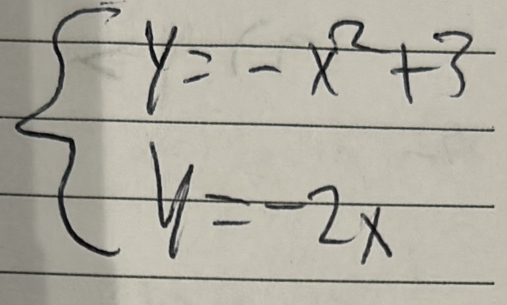 y = -x² + 3
y = -2x